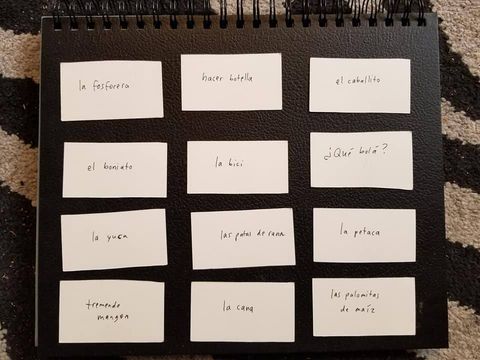 la fosforera
hacer botella
el caballito
el boniato
la bici
¿Qué bolá?
la yuca
las patas de rana
la petaca
tremendo
mangon
la cana
las palomitas
de maíz